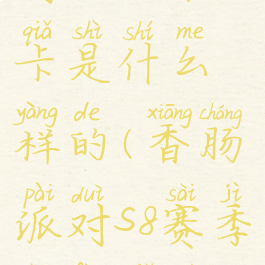 qiǎ shì shí me
卡是什么
yàng de xiāng cháng
样的(香肠
pài duì sài jì
派对S8赛季